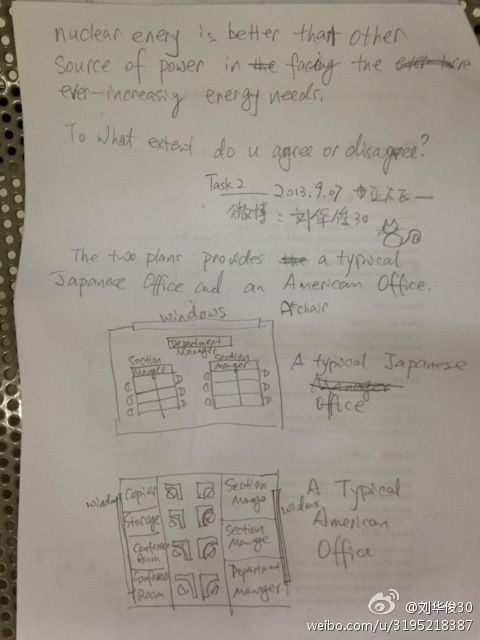 nuclear enery is better than other
source of power in the facing the ever incre
ever-increasing energy needs.
To what extent do u agree or disagree?
Task 2 2013.9.07
微博：刘华俊30
The two plans provides the a typical
Japanese Office and an American Office.
A chair
windows
Department
Manager
Section
Manager
Section
Manager
A typical Japanese
Manager
Office
Copier
Section
Manage
windows
Storage
windows
Section
Manage
Conference
Room
Conference
Room
Department
Manager
A Typical
American
Office
@刘华俊30
weibo.com/u/3195218387